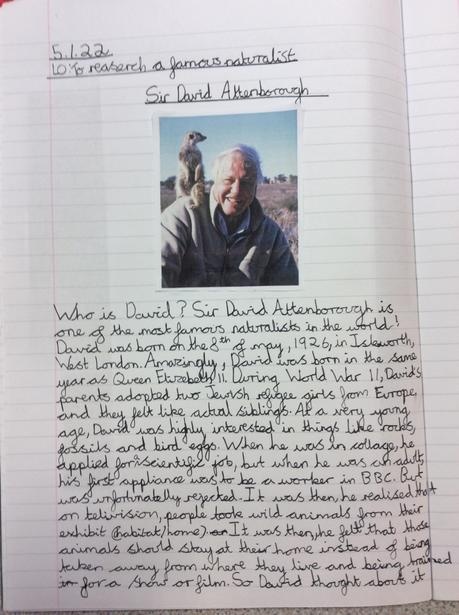 5.1.22
LO: To reaserch a famous naturalist
Sir David Attenborough
Who is David? Sir David Attenborough is
one of the most famous naturalists in the world!
David was born on the 8th of may, 1926, in Isleworth,
West London. Amazingly, David was born in the same
year as Queen Elizabeth II. During World War II, David's
parents adopted two Jewish refugee girls from Europe,
and they felt like actual siblings. At a very young
age, David was highly interested in things like rocks,
fossils and bird eggs. When he was in collage, he
applied for scientific job, but when he was an adult,
his first appliance was to be a worker in BBC. But
was unfortunatly rejected. It was then, he realised that
on telivision, people took wild animals from their
exhibit (habitat/home). It was then, he felt that those
animals should stay at their home instead of being
taken away from where they live and being trained
for a show or film. So David thought about it